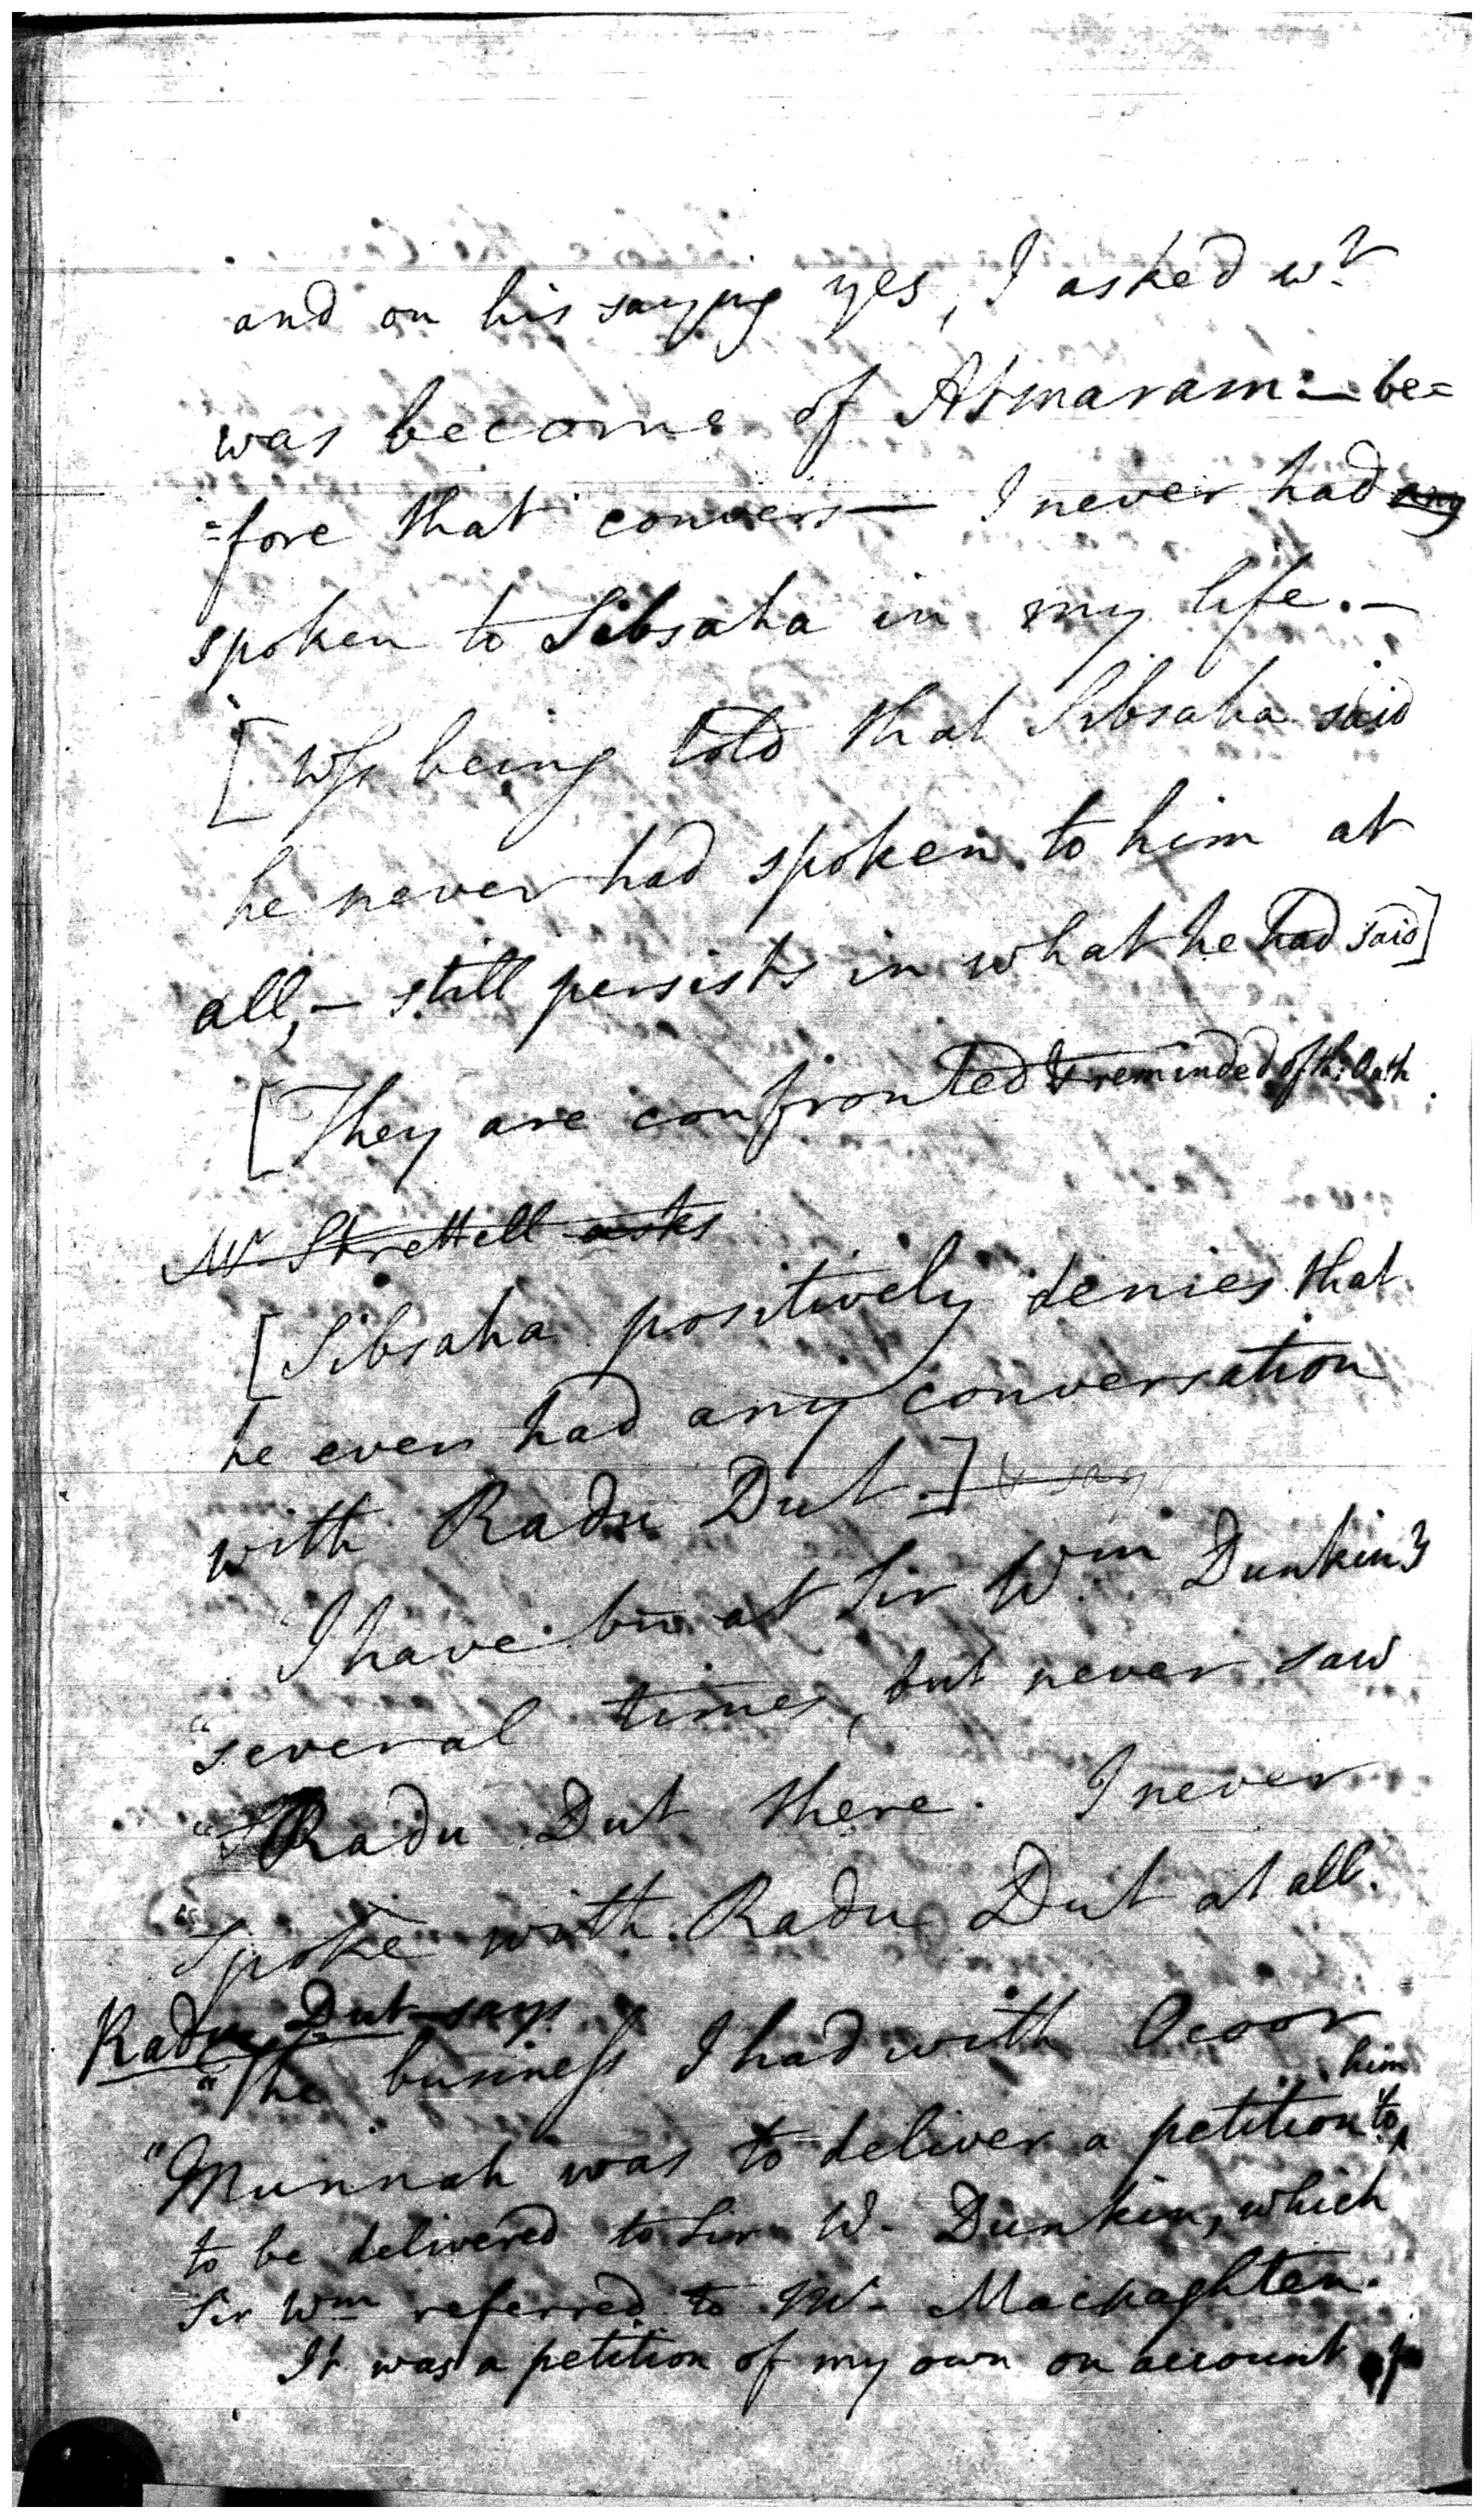 and on his saying yes, I asked wt
was become of Atmaram:— be=
=fore that convers— I never had any
spoken to Sibsaha in my life.—
[Ws being told that Sibsaha said
he never had spoken to him at
all,— still persists in what he had said]
[They are confronted & reminded of th: Oath.
Mr Strettell asks
[Sibsaha positively denies that
he ever had any conversation
with Radu Dut.] & says
"I have bn at Sir Wm Dunkin's
"several times, but never saw
"Radu Dut there. I never
"spoke with Radu Dut at all.
Radu Dut says
"The business I had with Ocoor
"Munnah was to deliver a petition to him
to be delivered to Sir W. Dunkin, which
Sir Wm referred to Mr Macnaghten.
It was a petition of my own on account of